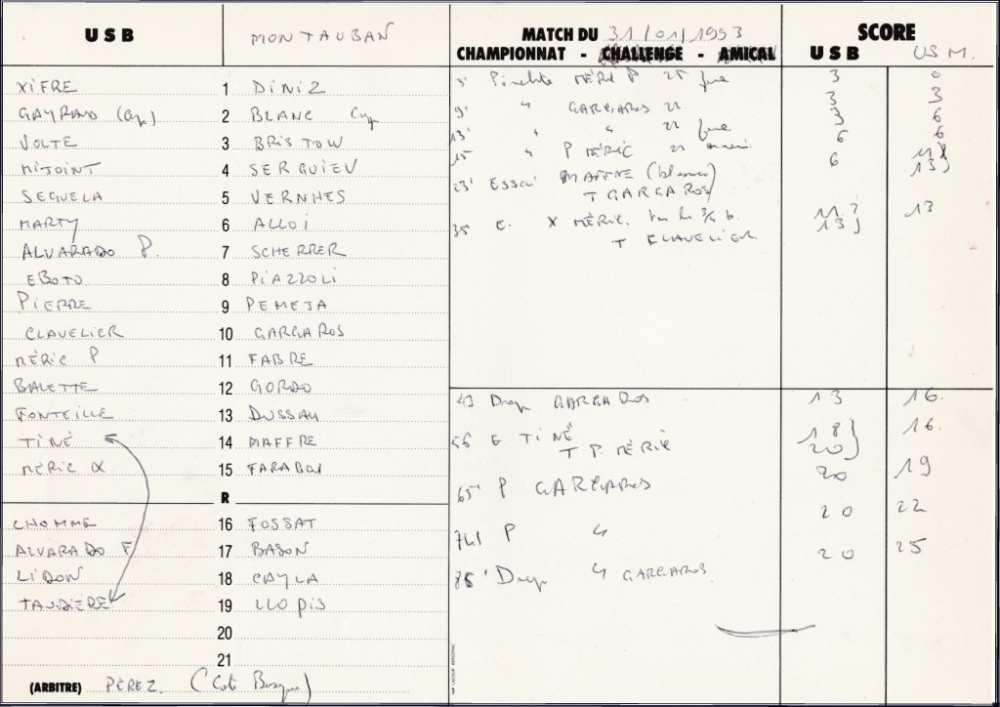 USB MONTAUBAN MATCH DU 31/01/1993 SCORE
CHAMPIONNAT - CHALLENGE - AMICAL USB USM.
XIFRE 1 DINIZ
GAYRAUD (Cap) 2 BLANC Cap
VOLTE 3 BRISTOW
MIJOINT 4 SERGUIEV
SEGUELA 5 VERNHES
MARTY 6 ALLOI
ALVARADO P. 7 SCHERRER
EBOTO 8 PIAZZOLI
PIERRE 9 PEMEJA
CLAVELIER 10 GARGAROS
MÉRIC P 11 FABRE
BALETTE 12 GORDO
FONTEILLE 13 DUSSAU
TINÉ 14 MAFFRE
MÉRIC X 15 FARABOI
R
LHOMME 16 FOSSAT
ALVARADO F 17 BASON
LIDON 18 CAYLA
TAUDIÈRE 19 LLOPIS
20
21
(ARBITRE) PÉREZ. (Côte Basque)
3' Pénalité MÉRIC P 25 face 3 0
9' " GARGAROS 22 3 3
13' " " 22 face 3 6
15' " P MÉRIC 22 6 6
23' Essai MAFFRE 6 11
T GARGAROS 13
35 E. X MÉRIC. 11 13
T CLAVELIER 13
43 Drop GARGAROS 13 16.
56 E TINÉ 18 16.
T P. MÉRIC 20
65' P GARGAROS 20 19
741 P " 20 22
85' Drop " GARGAROS 20 25